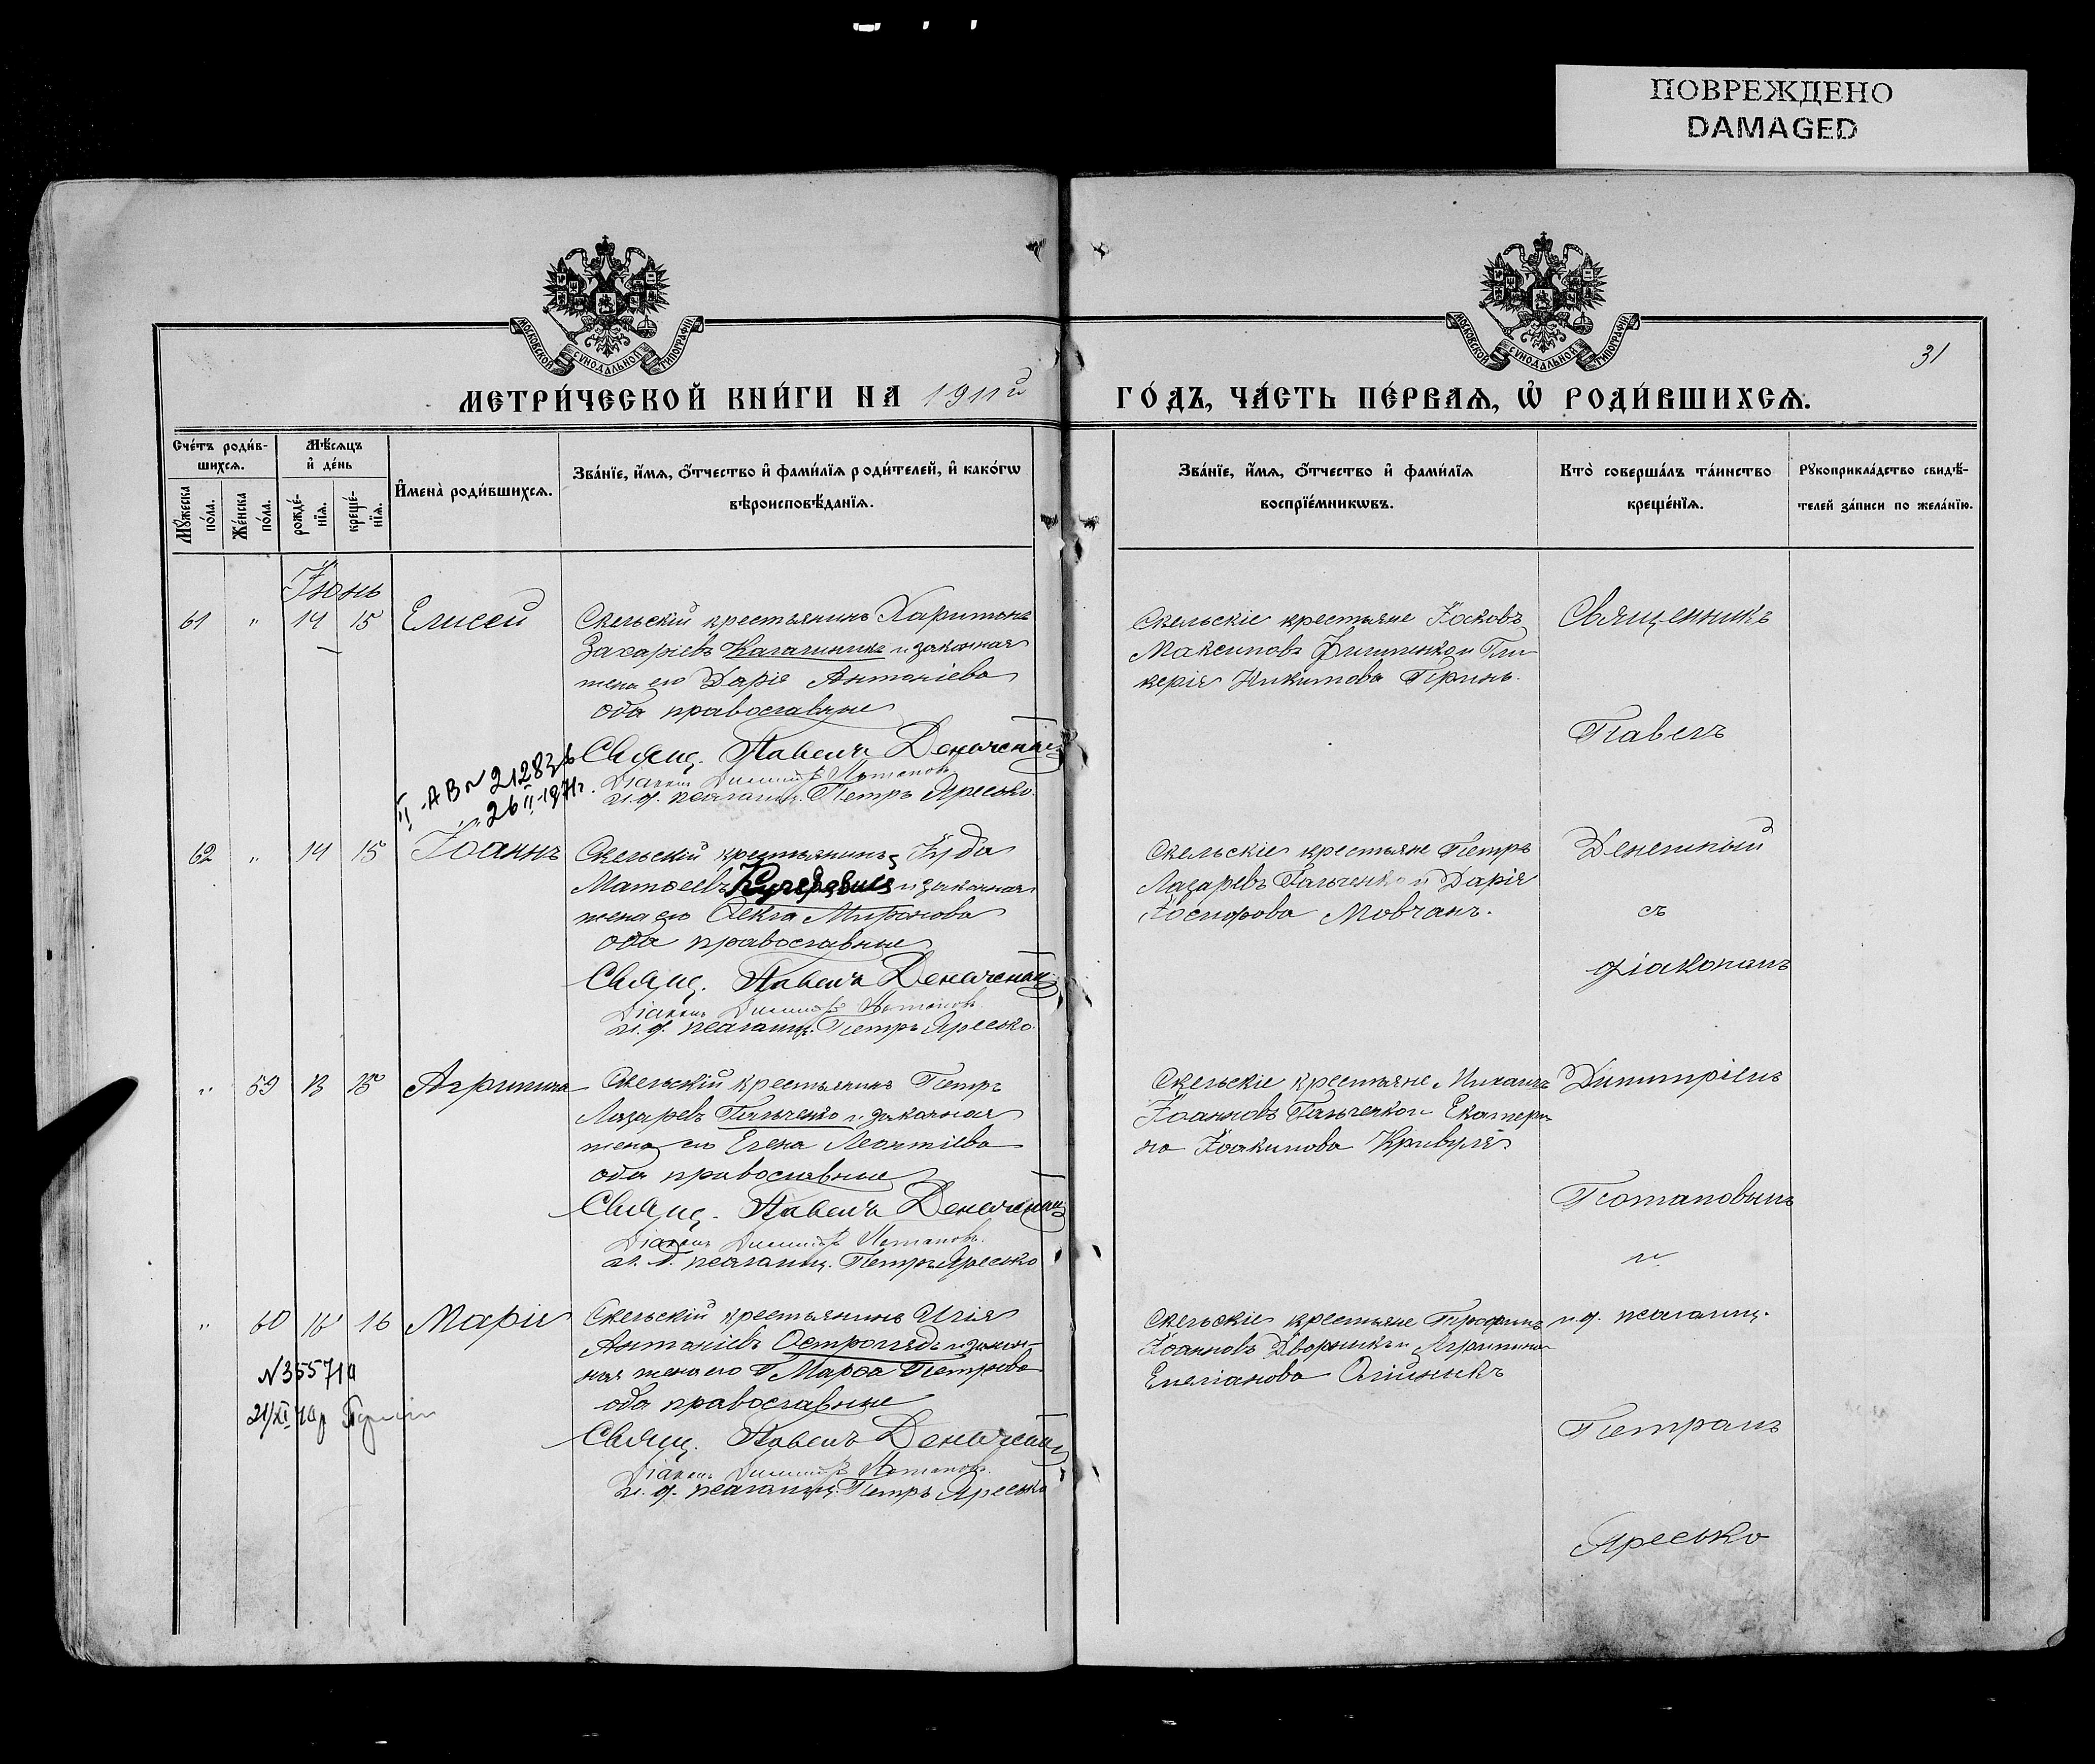 ПОВРЕЖДЕНО
DAMAGED
МОСКОВСКОЙ СѴНОДАЛЬНОЙ ТИПОГРАФІИ
МОСКОВСКОЙ СѴНОДАЛЬНОЙ ТИПОГРАФІИ
31
МЕТРИ́ЧЕСКОЙ КНИ́ГИ НА 1911й
ГО́ДЪ, ЧА́СТЬ ПЕ́РВАѦ, Ѡ҆ РОДИ́ВШИХСѦ.
Сче́тъ роди́в-
шихсѧ.
Мꙋ́жеска
по́ла.
Же́нска
по́ла.
Мѣ́сѧцъ
и҆ де́нь
рожде́-
нїѧ.
креще́-
нїѧ.
И҆мена̀ роди́вшихсѧ.
Зва́нїе, и҆́мѧ, ѻ҆́тчество и҆ фами́лїѧ роди́телей, и҆ како́гѡ
вѣроисповѣ́данїѧ.
Зва́нїе, и҆́мѧ, ѻ҆́тчество и҆ фами́лїѧ
воспрїе́мникѡвъ.
Кто̀ соверша́лъ та́инство
креще́нїѧ.
Рꙋкоприкла́дство свидѣ́-
телей за́писи по жела́нїю.
Іюнь
61 " 14 15 Елисей
Скельскій крестьянинъ Харитонъ
Захаріевъ и законная
жена его Дарія Антоніева
оба православные
Свящ. Павелъ
Діаконъ Димитр. Потаповъ
и. д. псаломщ. Петръ Яресько.
Скельскіе крестьяне Іаковъ
Максимовъ и Гли-
керія Никитова
Священникъ
Павелъ
II-АВ № 212836
26 II-1971г.
62 " 14 15 Іоаннъ
Скельскій крестьянинъ Іуда
Матѳеевъ Кучерявый и законная
жена его Ѳекла Миронова
оба православные
Свящ. Павелъ
Діаконъ Димитр. Потаповъ
и. д. псаломщ. Петръ Яресько.
Скельскіе крестьяне Петръ
Лазаревъ Гальченко и Дарія
Іосифова Мовчанъ.
съ
діакономъ
" 59 13 15 Агрипина
Скельскій крестьянинъ Петръ
Лазаревъ Гальченко и законная
жена его Елена Леонтіева
оба православные
Свящ. Павелъ
Діаконъ Димитр. Потаповъ.
и. д. псаломщ. Петръ Яресько
Скельскіе крестьяне Михаилъ
Іоанновъ Гальченко и Екатери-
на Іоакимова Кривуля
Димитріемъ
Потаповымъ
и
" 60 15 16 Марія
Скельскій крестьянинъ Илія
Антоніевъ Остроглядъ и закон-
ная жена его Марѳа Петрова
оба православные
Свящ. Павелъ
Діаконъ Димитр. Потаповъ.
и. д. псаломщ. Петръ Яресько
Скельскіе крестьяне Трофимъ
Іоанновъ Дворникъ и Агрипина
Емеліанова Олійникъ
и. д. псаломщ.
Петромъ
Яресько
№355710
21/XI